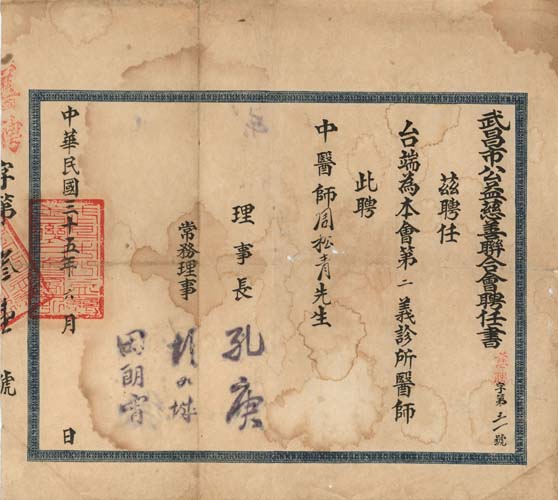 武昌市公益慈善聯合會聘任書
字第三一號
茲聘任
台端為本會第二義診所醫師
此聘
中醫師周松青先生
理事長
孔庚
常務理事
田朗霄
中華民國三十五年六月 日
字第 號